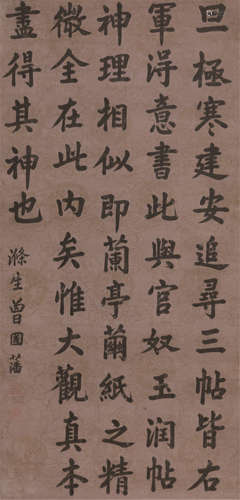 旦極寒建安追尋三帖皆右
軍得意書此與官奴玉潤帖
神理相似即蘭亭繭紙之精
微全在此內矣惟大觀真本
盡得其神也
滌生曾國藩